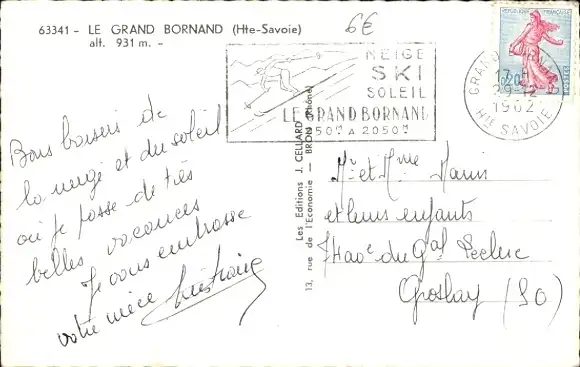 63341 - LE GRAND BORNAND (Hte-Savoie)
alt. 931 m. -
6€
NEIGE
SKI
SOLEIL
LE GRAND BORNAND
950m A 2050m
29-12
1962
HTE SAVOIE
0,20
Les Editions J. CELLARD
13, rue de l'Economie - BRON (Rhône)
Bons baisers de
la neige et du soleil
où je passe de très
belles vacances
Je vous embrasse
votre nièce
Mr et Mme
et leurs enfants
du Gal Leclerc
Groslay (SO)